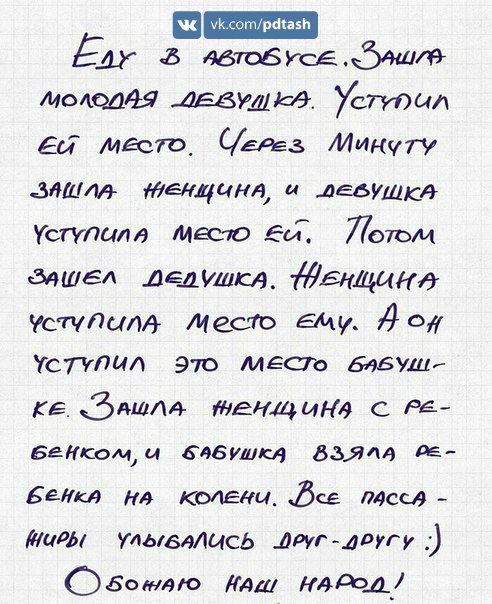 vk.com/pdtash
Еду в автобусе. Зашла
молодая девушка. Уступил
ей место. Через минуту
зашла женщина, и девушка
уступила место ей. Потом
зашел дедушка. Женщина
уступила место ему. А он
уступил это место бабуш-
ке. Зашла женщина с ре-
бенком, и бабушка взяла ре-
бенка на колени. Все пасса-
жиры улыбались друг-другу :)
Обожаю наш народ!